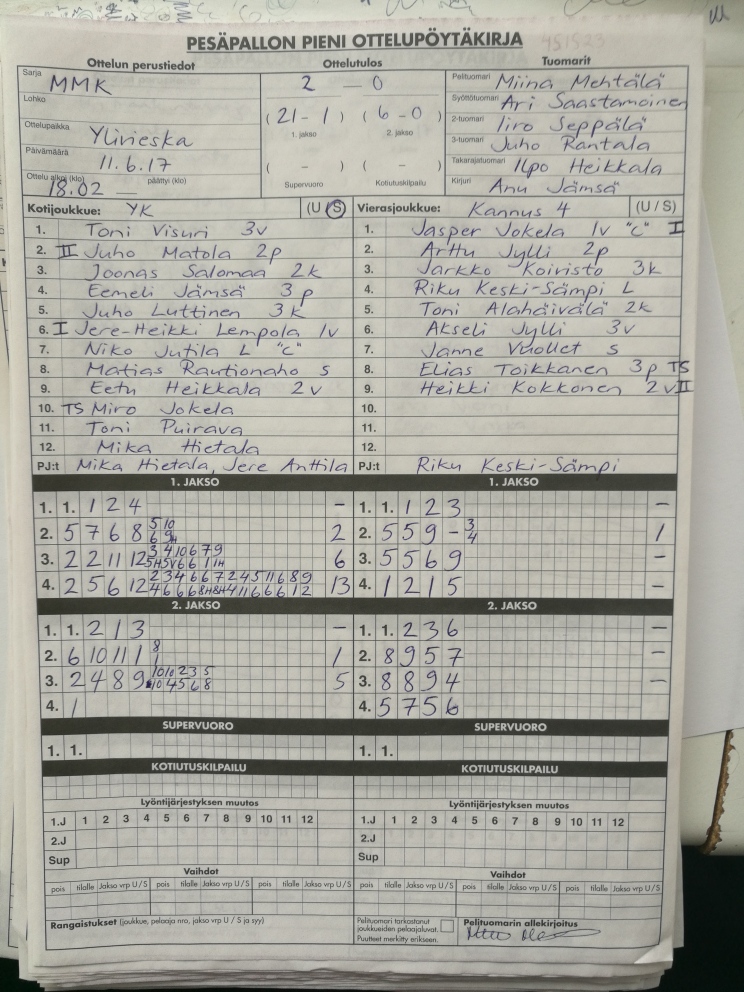 PESÄPALLON PIENI OTTELUPÖYTÄKIRJA 451523
Ottelun perustiedot Ottelutulos Tuomarit
Sarja MMK 2 — 0 Pelituomari Miina Mehtälä
Lohko Syöttötuomari Ari Saastamoinen
(21 - 1) (6 - 0)
1. jakso 2. jakso
Ottelupaikka Ylivieska 2-tuomari Iiro Seppälä
Päivämäärä 11.6.17 3-tuomari Juho Rantala
( - ) ( - ) Takarajatuomari Ilpo Heikkala
Ottelu alkoi (klo) 18.02 päättyi (klo) — Supervuoro Kotiutuskilpailu Kirjuri Anu Jämsä
Kotijoukkue: YK (U / S) Vierasjoukkue: Kannus 4 (U / S)
1. Toni Visuri 3v 1. Jasper Jokela 1v "C" I
2. II Juho Matola 2p 2. Arttu Jylli 2p
3. Joonas Salomaa 2k 3. Jarkko Koivisto 3k
4. Eemeli Jämsä 3p 4. Riku Keski-Sämpi L
5. Juho Luttinen 3k 5. Toni Alahäivälä 2k
6. I Jere-Heikki Lempola 1v 6. Akseli Jylli 3v
7. Niko Jutila L "C" 7. Janne Vuollet S
8. Matias Rautionaho S 8. Elias Toikkanen 3p TS
9. Eetu Heikkala 2v 9. Heikki Kokkonen 2v II
10. TS Miro Jokela 10.
11. Toni Puirava 11.
12. Mika Hietala 12.
PJ:t Mika Hietala, Jere Anttila PJ:t Riku Keski-Sämpi
1. JAKSO 1. JAKSO
1. 1. 1 2 4 — 1. 1. 1 2 3 —
2. 5 7 6 8 5 10 2 2. 5 5 9 - 3/4 1
3. 2 2 11 12 3 4 10 6 7 9 6 3. 5 5 6 9 —
4. 2 5 6 12 2 3 4 6 6 7 2 4 5 11 6 8 9 13 4. 1 2 1 5 —
2. JAKSO 2. JAKSO
1. 1. 2 1 3 — 1. 1. 2 3 6 —
2. 6 10 11 1 8 1 2. 8 9 5 7 —
3. 2 4 8 9 10 10 2 3 5 5 3. 8 8 9 4 —
10 4 5 6 8
4. 1 4. 5 7 5 6
SUPERVUORO SUPERVUORO
1. 1. 1. 1.
KOTIUTUSKILPAILU KOTIUTUSKILPAILU
Lyöntijärjestyksen muutos Lyöntijärjestyksen muutos
1.J 1 2 3 4 5 6 7 8 9 10 11 12 1.J 1 2 3 4 5 6 7 8 9 10 11 12
2.J 2.J
Sup Sup
Vaihdot Vaihdot
pois tilalle Jakso vrp U/S pois tilalle Jakso vrp U/S pois tilalle Jakso vrp U/S pois tilalle Jakso vrp U/S pois tilalle Jakso vrp U/S pois tilalle Jakso vrp U/S
Rangaistukset (joukkue, pelaaja nro, jakso vrp U / S ja syy) Pelituomari tarkastanut joukkueiden pelaajaluvat. Puutteet merkitty erikseen. Pelituomarin allekirjoitus